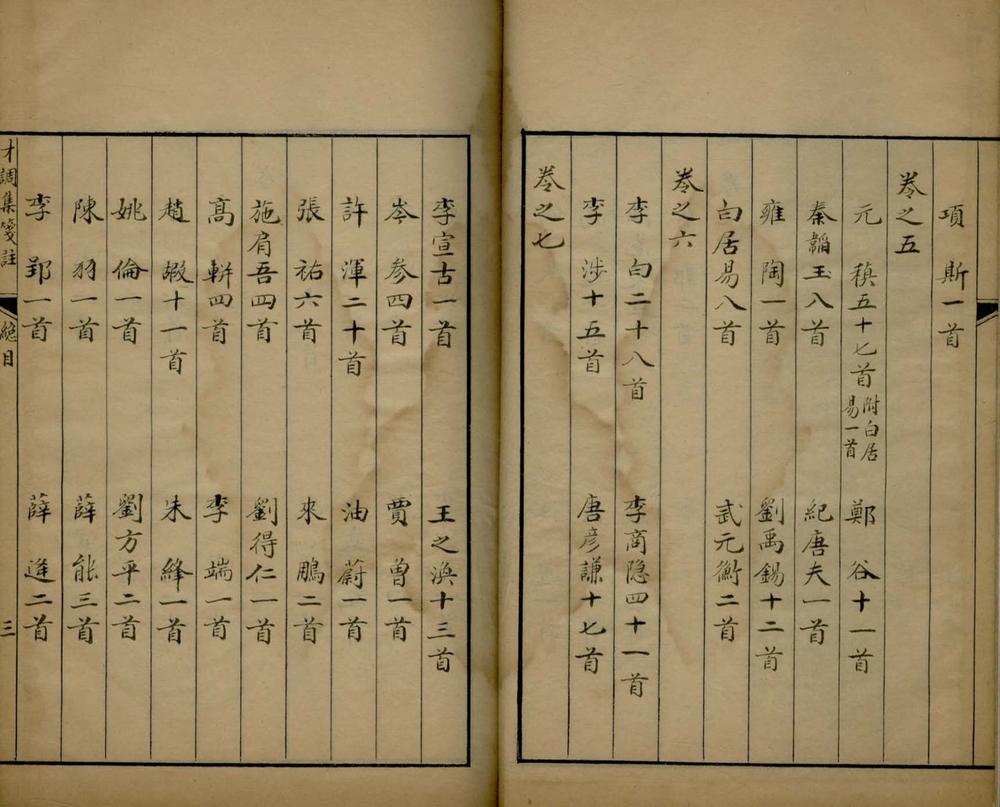 項斯一首
卷之五
元稹五十七首附白居易一首 鄭谷十一首
秦韜玉八首 紀唐夫一首
雍陶一首 劉禹錫十二首
白居易八首 武元衡二首
卷之六
李白二十八首 李商隐四十一首
李涉十五首 唐彦謙十七首
卷之七
李宣古一首 王之渙十三首
岑参四首 賈曾一首
許渾二十首 油蔚一首
張祐六首 來鵬二首
施肩吾四首 劉得仁一首
高輧四首 李端一首
趙嘏十一首 朱絳一首
姚倫一首 劉方平二首
陳羽一首 薛能三首
李郢一首 薛逢二首
才調集箋註 總目 三